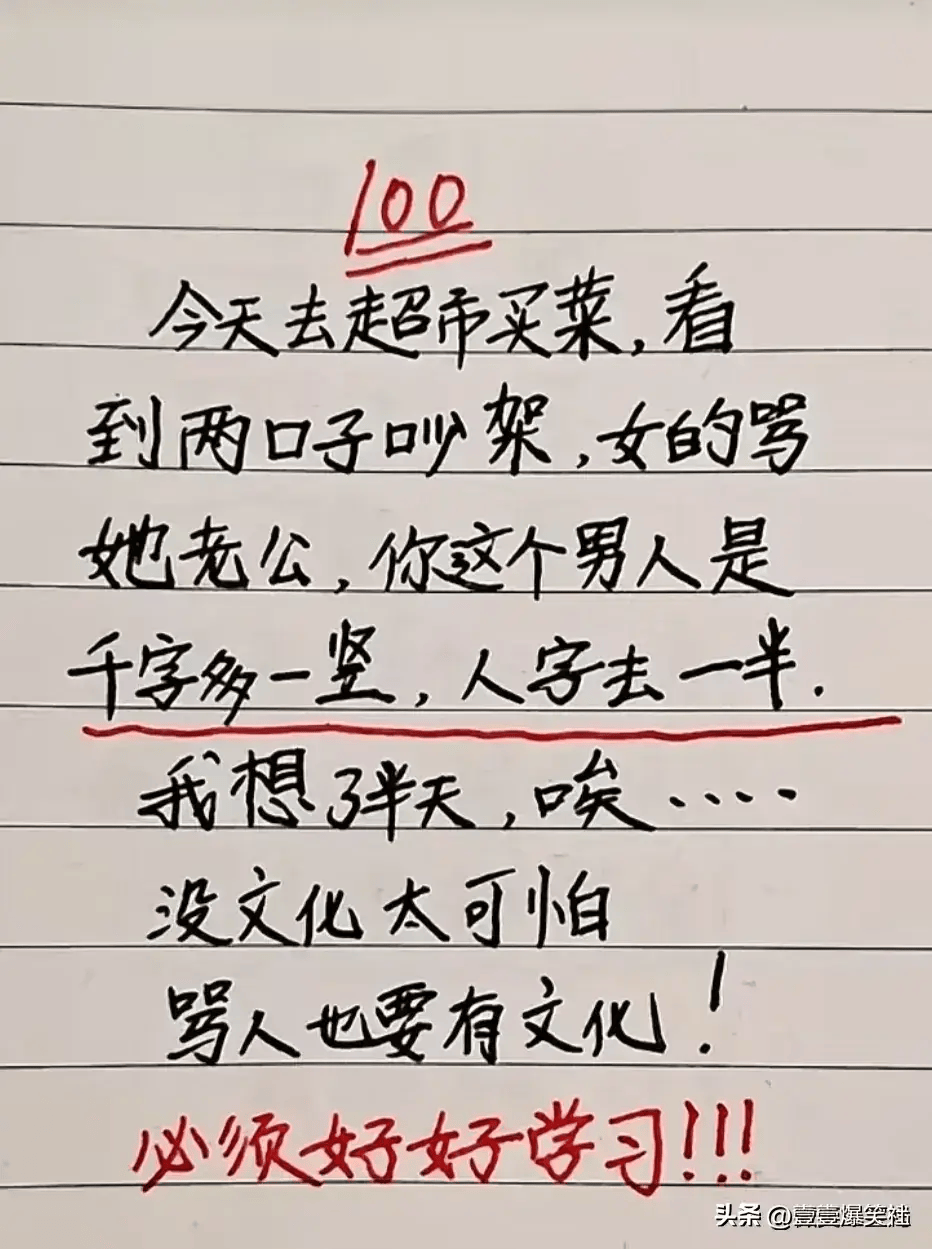 100
今天去超市买菜,看
到两口子吵架,女的骂
她老公,你这个男人是
千字多一竖,人字去一半.
我想了半天,唉····
没文化太可怕
骂人也要有文化!
必须好好学习!!!
头条 @壹壹爆笑社